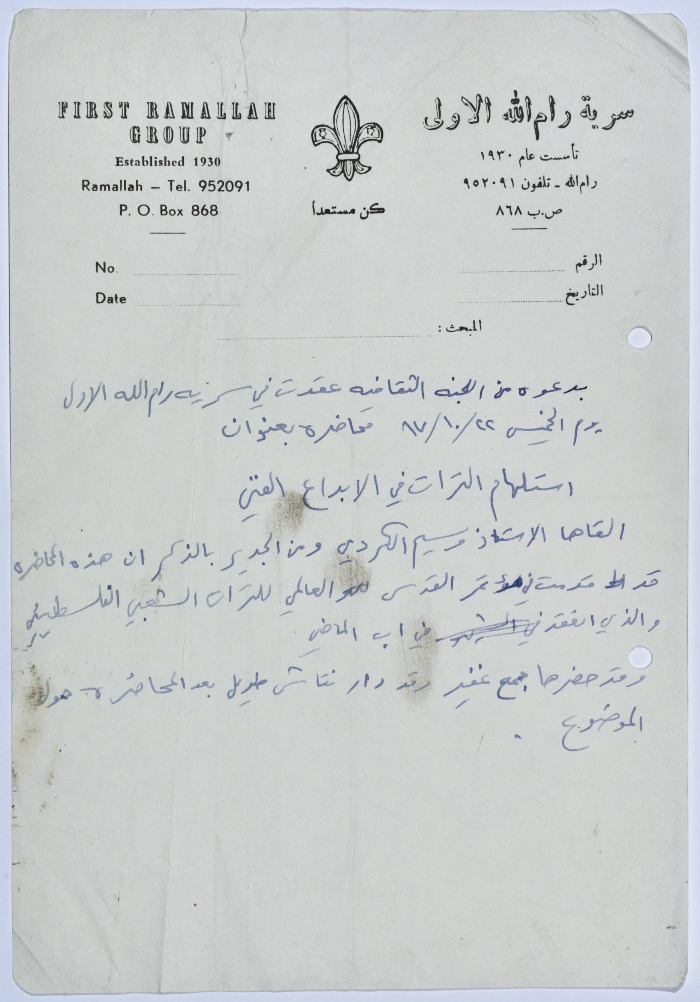 FIRST RAMALLAH
GROUP
Established 1930
Ramallah – Tel. 952091
P. O. Box 868
كن مستعداً
سرية رام الله الاولى
تأسست عام ١٩٣٠
رام الله ـ تلفون ٩٥٢٠٩١
ص.ب ٨٦٨
No.
Date
الرقم
التاريخ
المبحث :
بدعوه من اللجنه الثقافيه عقدت في سريه رام الله الاولى
يوم الخميس ٢٢/١٠/٨٧ محاضره بعنوان
استلهام التراث في الابداع الفني
القاها الاستاذ وسيم الكردي ومن الجدير بالذكر ان هذه المحاضره
قد قدمت في مؤتمر القدس العالمي للتراث الشعبي الفلسطيني
والذي انعقد في في اب الماضي
وقد حضرها جمع غفير وقد دار نقاش طويل بعد المحاضرة حول
الموضوع .